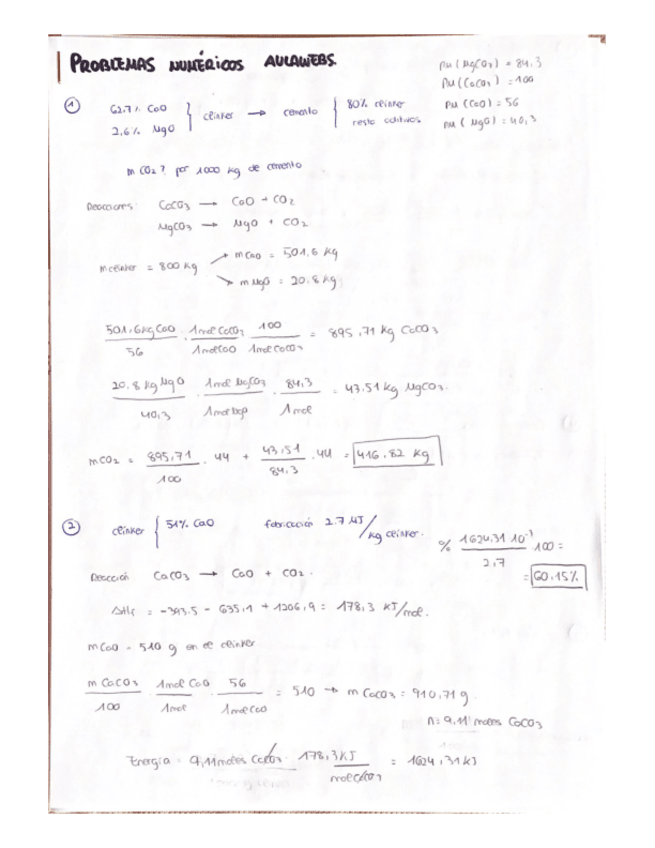 PROBLEMAS NUMÉRICOS AULAWEBS.
PM (MgCO3) = 84,3
PM (CaCO3) = 100
PM (CaO) = 56
PM (MgO) = 40,3
① 62.7% CaO
2,6% MgO
clínker → cemento
80% clínker
resto aditivos
m CO2? por 1000 kg de cemento
Reacciones: CaCO3 → CaO + CO2
MgCO3 → MgO + CO2
m clínker = 800 kg
m CaO = 501,6 kg
m MgO = 20.8 kg
501,6 kg CaO / 56 · 1 mol CaCO3 / 1 mol CaO · 100 / 1 mol CaCO3 = 895,71 kg CaCO3
20.8 kg MgO / 40,3 · 1 mol MgCO3 / 1 mol MgO · 84,3 / 1 mol = 43.51 kg MgCO3.
mCO2 = 895,71 / 100 · 44 + 43,51 / 84,3 · 44 = 416.82 kg
② clínker { 51% CaO fabricación 2.7 MJ/kg clínker.
% 1624.31 10⁻³ / 2,7 100 =
= 60.15%
Reacción CaCO3 → CaO + CO2.
ΔHr = -393.5 - 635,1 + 1206,9 = 178,3 kJ/mol.
m CaO = 510 g en el clínker
m CaCO3 / 100 · 1 mol CaO / 1 mol · 56 / 1 mol CaO = 510 → m CaCO3 = 910,71 g.
n = 9,11 moles CaCO3
Energía = 9,11 moles CaCO3 · 178,3 kJ / mol CaCO3 = 1624,31 kJ